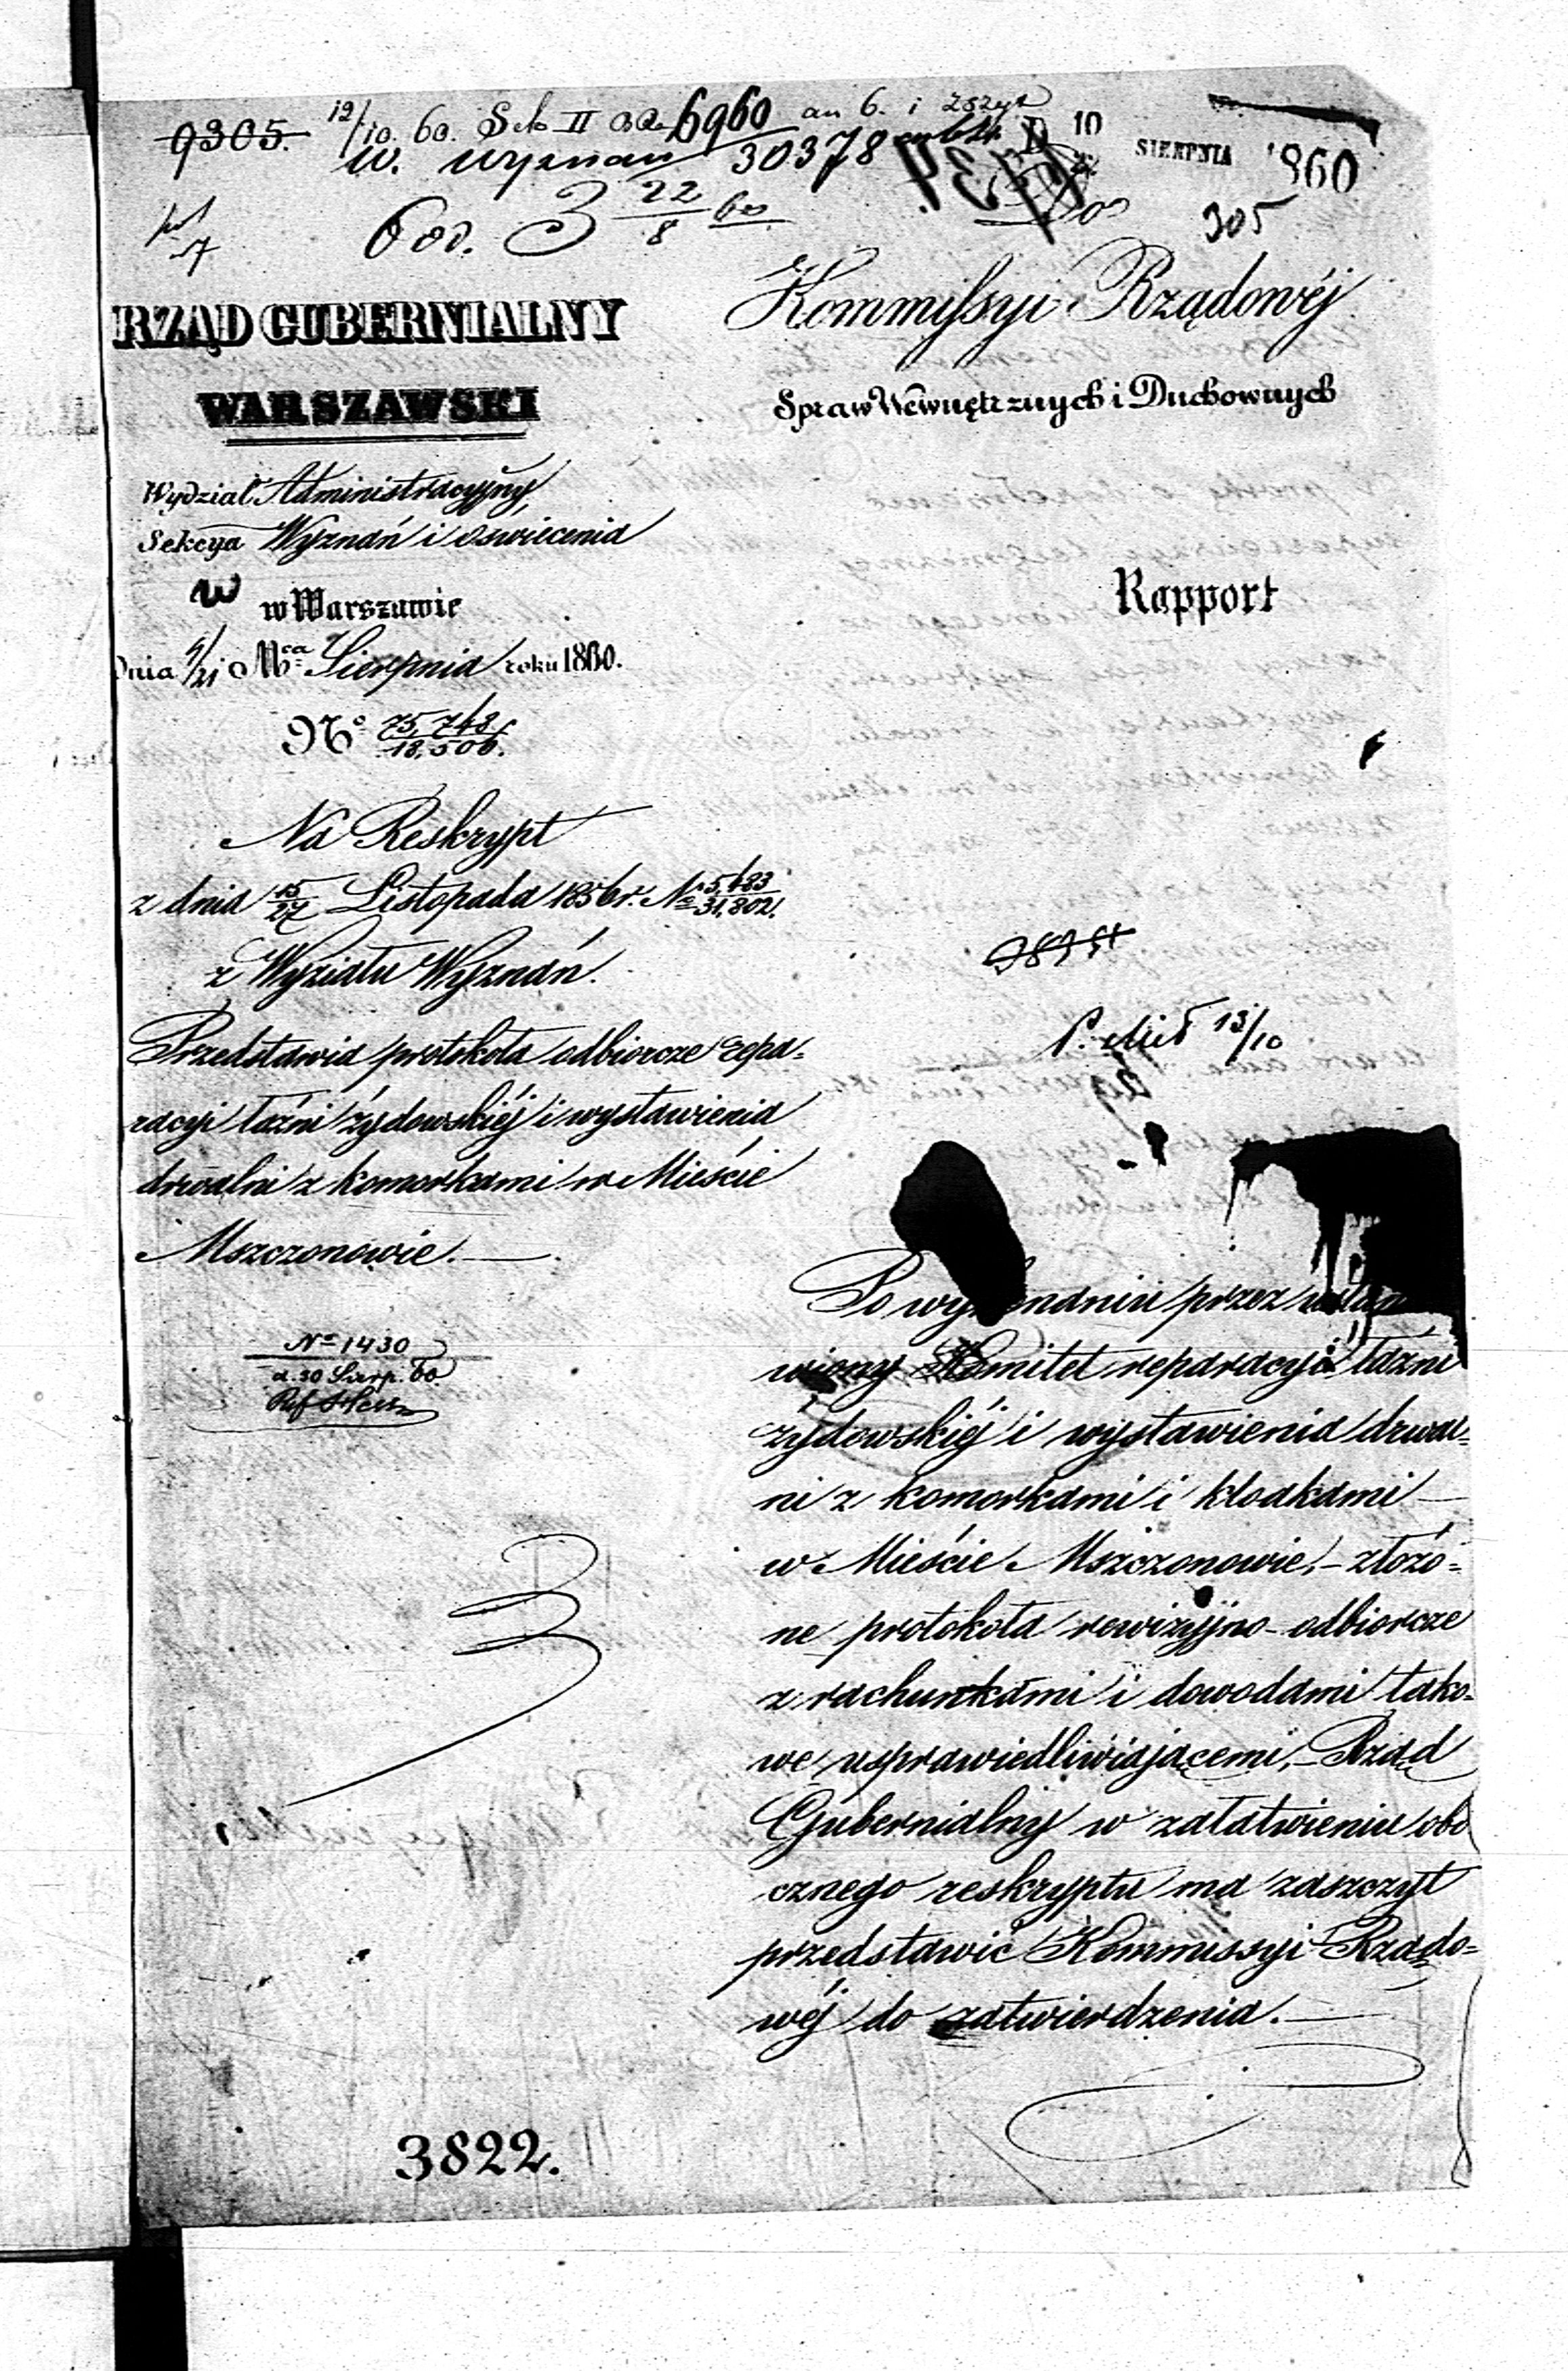 9305. 12/10. 60. II 6960 an 6. i zszyt
w. wyznań 30378
10 SIERPNIA 1860
22/8 60
305
RZĄD GUBERNIALNY
WARSZAWSKI
Wydział Administracyjny,
Sekcya Wyznań i Oswiecenia
w Warszawie
Dnia 9/21 Mca Sierpnia roku 1860.
No 75,768/18,506.
Na Reskrypt
z dnia 15/27 Listopada 1856 r. No 5,683/31,802.
z Wyziału Wyznań.
Przedstawia protokoła odbiorcze repa=
racyi łaźni żydowskiéj i wystawienia
drwalni z komorkami w Mieście
Mszczonowie.
No 1430
d. 30 Sierp. 60
3822.
Kommissyi Rządowéj
Spraw Wewnętrznych i Duchownych
Rapport
13/10
Po przez
wiony Komitet reparacyi łaźni
żydowskiéj i wystawienia drwal=
ni z komorkami i kloakami
w Mieście Mszczonowie, złożo=
ne protokoła rewizyjno-odbiorcze
z rachunkami i dowodami tako=
we usprawiedliwiającemi, Rząd
Gubernialny w załatwieniu obo
cznego reskryptu ma zaszczyt
przedstawić Kommissyi Rządo=
wéj do zatwierdzenia.